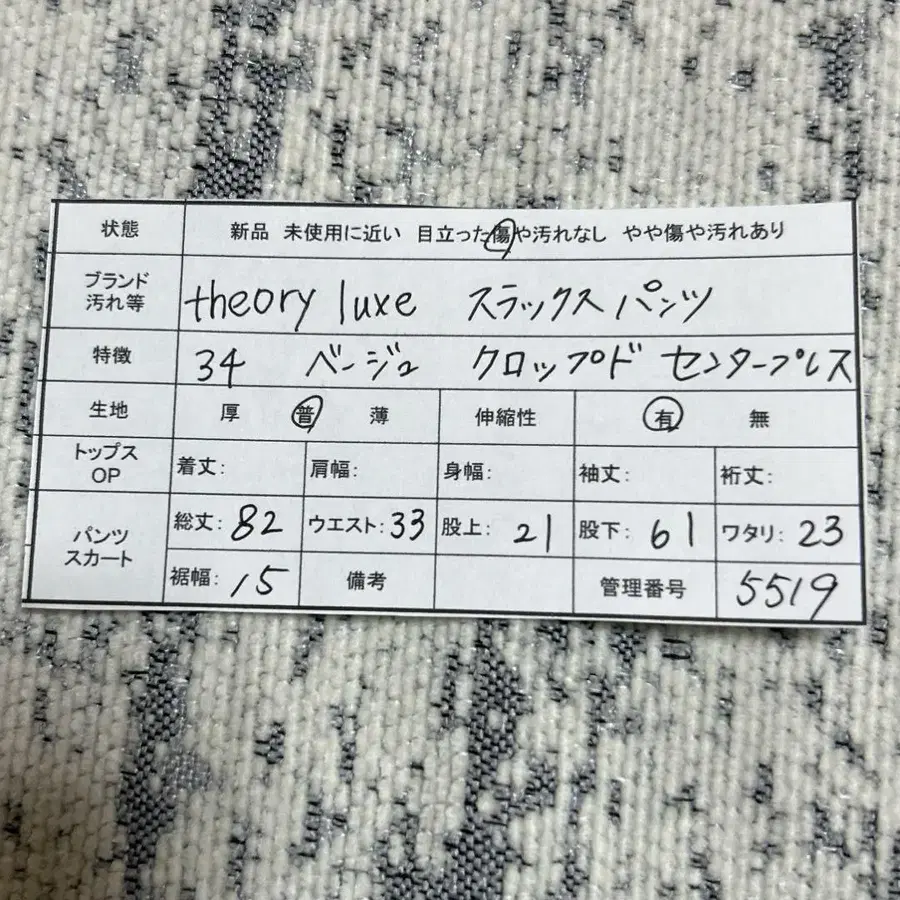 状態 新品 未使用に近い 目立った傷や汚れなし やや傷や汚れあり
ブランド
汚れ等 theory luxe スラックスパンツ
特徴 34 ベージュ クロップド センタープレス
生地 厚 普 薄 伸縮性 有 無
トップス
OP 着丈: 肩幅: 身幅: 袖丈: 裄丈:
パンツ
スカート 総丈: 82 ウエスト: 33 股上: 21 股下: 61 ワタリ: 23
裾幅: 15 備考 管理番号 5519